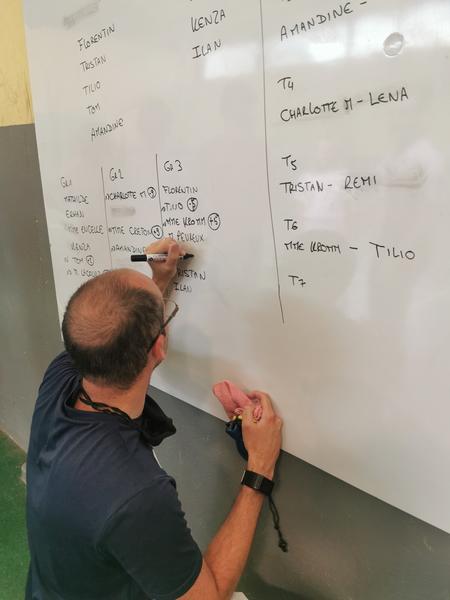 FLORENTIN
TRISTAN
TILIO
TOM
AMANDINE
KENZA
ILAN
AMANDINE -
T4
CHARLOTTE M - LENA
T5
TRISTAN - REMI
T6
MME KROMM - TILIO
T7
GR1
MATHILDE
ERHAN
KENZA
TOM +1
GR2
CHARLOTTE M +3
MME CRETON
AMANDINE
GR3
FLORENTIN
TILIO +5
MME KROMM +5
M. PEUVEUX
TRISTAN
ILAN